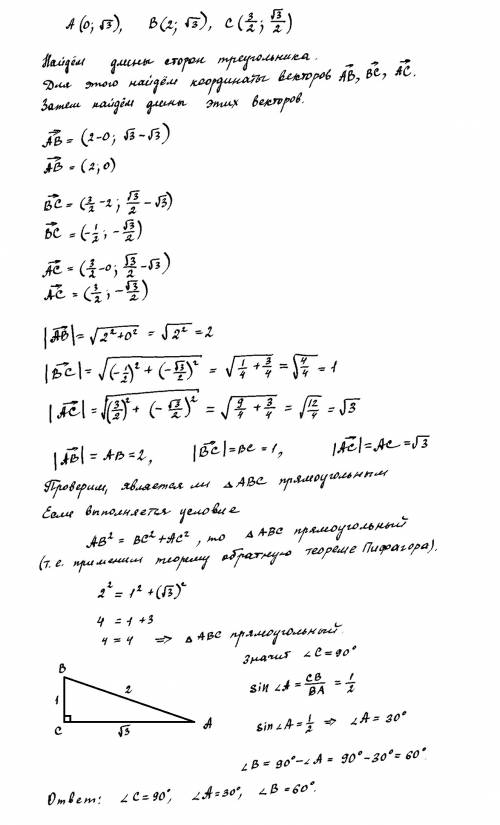 A (0; √3), B (2; √3), C (3/2; √3/2)
Найдём длины сторон треугольника.
Для этого найдём координаты векторов AB, BC, AC.
Затем найдём длины этих векторов.
AB = (2-0; √3-√3)
AB = (2; 0)
BC = (3/2 - 2; √3/2 - √3)
BC = (-1/2; -√3/2)
AC = (3/2 - 0; √3/2 - √3)
AC = (3/2; -√3/2)
|AB| = √(2² + 0²) = √2² = 2
|BC| = √((-1/2)² + (-√3/2)²) = √(1/4 + 3/4) = √(4/4) = 1
|AC| = √((3/2)² + (-√3/2)²) = √(9/4 + 3/4) = √(12/4) = √3
|AB| = AB = 2, |BC| = BC = 1, |AC| = AC = √3
Проверим, является ли △ABC прямоугольным
Если выполняется условие
AB² = BC² + AC², то △ABC прямоугольный
(т.е. применим теорему обратную теореме Пифагора).
2² = 1² + (√3)²
4 = 1 + 3
4 = 4 => △ABC прямоугольный.
Значит ∠C = 90°
sin∠A = CB/BA = 1/2
sin∠A = 1/2 => ∠A = 30°
∠B = 90° - ∠A = 90° - 30° = 60°
B
2
1
C
√3
A
Ответ: ∠C = 90°, ∠A = 30°, ∠B = 60°.